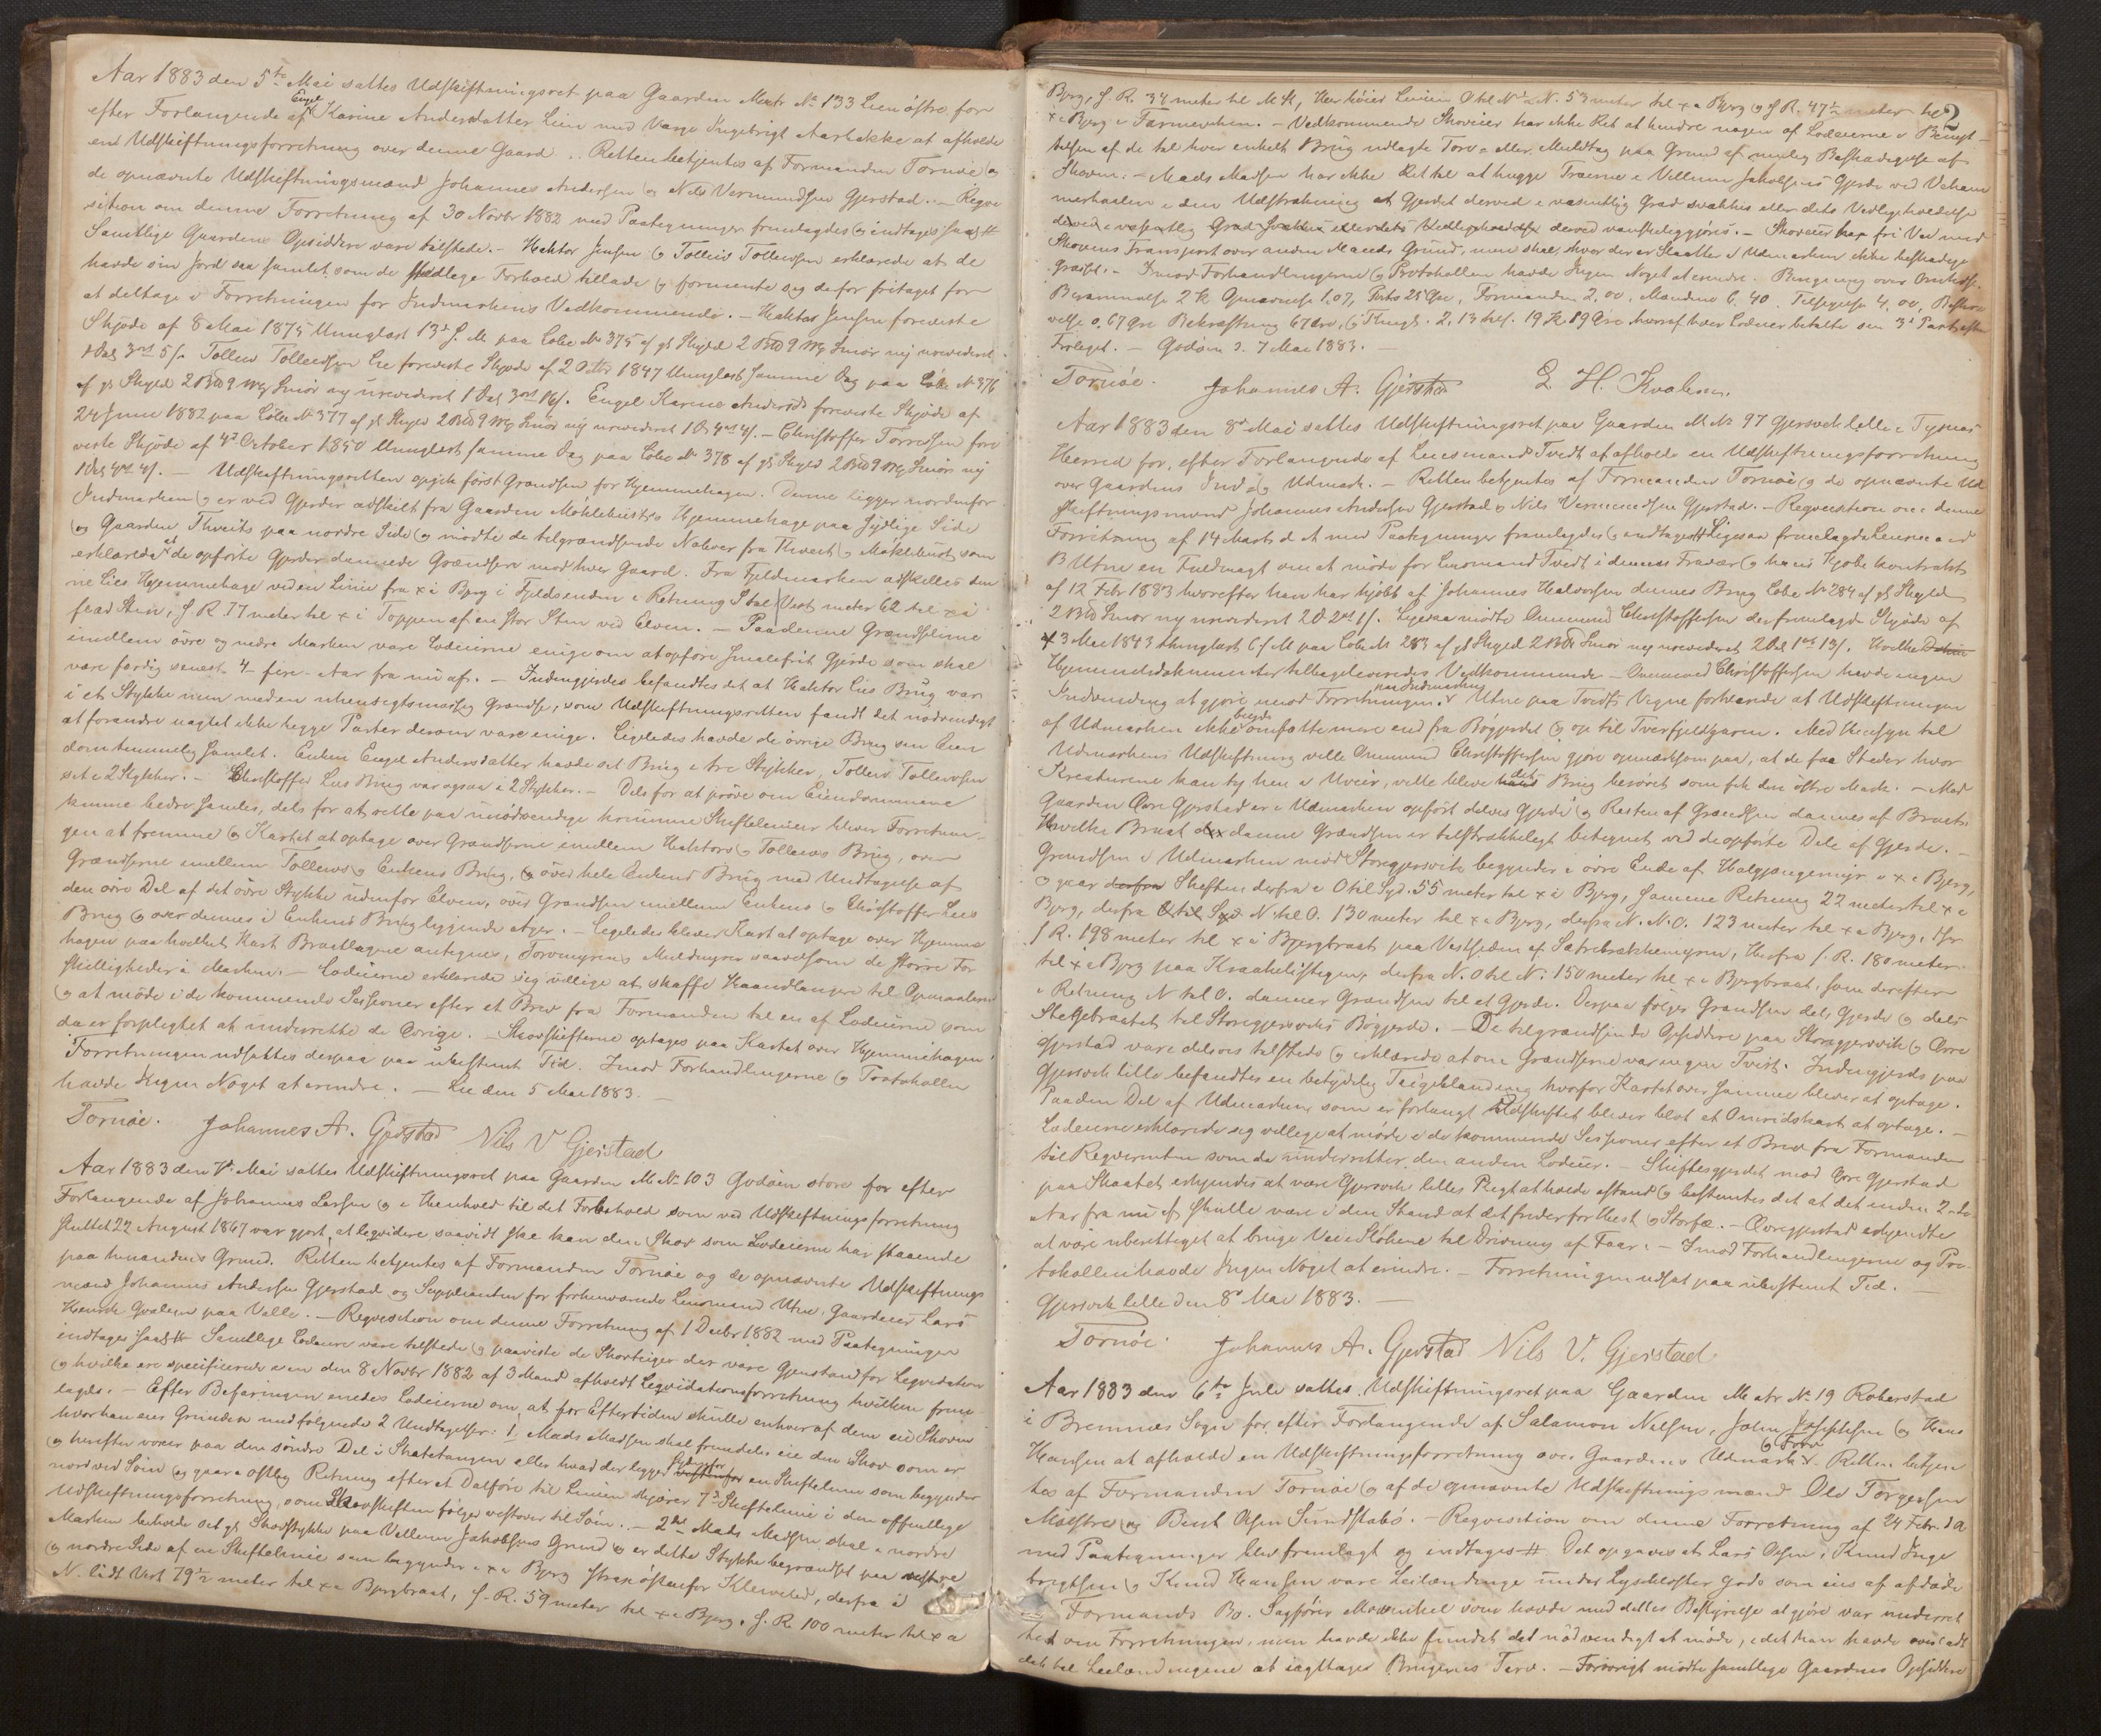 Aar 1883 den 5te Mai sattes Udskiftningsret paa Gaarden Matr No 133 Lien östre for
efter Forlangende af Engel K Karine Andersdatter Lien med Værge Ingebrigt Aartække at afholde
en Udskiftningsforretning over denne Gaard. Retten betjentes af Formanden Tornöe og
de opnævnte Udskiftningsmænd Johannes Andersen og Nils Vermundsen Gjerstad. - Reqvi
sition om denne Forretning af 30 Novbr 1882 med Paategninger fremlagdes og indtages saal #
Samtlige Gaardens Opsiddere vare tilstede. - Hektor Jensen og Tolleiv Tolleivsen erklærede at de
havde sin Jord saa samlet som de stedlige Forhold tillade og formente sig derfor fritaget for
at deltage i Forretningen for Indmarkens Vedkommende. - Hektor Jensen foreviste
Skjøde af 8 Mai 1875 thinglæst 13d s. M. paa Löbe No 375 af gl Skyld 2 Bpd 9 Mrk Smör ny urevideret
1 Dal 3 ort 5 s. Tolleiv Tolleivsen Lie foreviste Skjøde af 2 Octbr 1847 thinglæst samme Dag paa Löbe No 376
af gl Skyld 2 Bpd 9 Mrk Smör ny urevideret 1 Dal 3 ort 16 s. Engel Karine Andersd foreviste Skjøde af
24 Juni 1882 paa Löbe No 377 af gl Skyld 2 Bpd 9 Mrk Smör ny urevideret 1 D 4 ort 4 s. - Christoffer Torressen fore
viste Skjöde af 4d October 1850 thinglæst samme Dag paa Löbe No 378 af gl Skyld 2 Bpd 9 Mrk Smör ny
1 Dal 4 ort 4 s. - Udskiftningsretten opgik först Grændsen for Hjemmehagen. Denne ligger nordenfor
Indmarken og er ved Gjerder adskilt fra Gaarden Möklebusts Hjemmehage paa sydlige Side
og Gaarden Thveits paa nordre Side og mödte de tilgrændsende Naboer fra Thveit og Möklebust som
erklærede at de opförte Gjerder dannede Grændsen mod hver Gaard. Fra Fjeldmarken adskilles den
ne Lies Hjemmehage ved en Linie fra x i Bjerg i Fjeldsenden i Retning S til Vest meter 62 til x i
flad Sten, S. R. 77 meter til x i Toppen af en stor Sten ved Elven. - Paa denne Grændselinie
imellem övre og nedre Marken vare Lodeierne enige om at opföre smalefrit Gjerde som skal
være færdig senest 4 - fire - Aar fra nu af. - Indengjerdes befandtes det at Hektor Lies Brug var
i et Stykke men med en uhensigtsmæssig Grændse, som Udskiftningsretten fandt det nödvendigt
at forandre uagtet ikke begge Parter derom vare enige. Ligeledes havde de övrige Brug sin Eien
dom temmelig samlet. Enken Engel Andersdatter havde sit Brug i tre Stykker, Tolleiv Tolleivsen
sit i 2 Stykker. - Christoffer Lies Brug var ogsaa i 2 Stykker. - Dels for at pröve om Eiendommene
kunne bedre samles, dels for at rette paa unödvendige krumme Skiftelinier bliver Forretnin-
gen at fremme og Kartet at optage over Grændserne imellem Hektors og Tolleivs Brug, over
Grændserne imellem Tolleivs og Enkens Brug, og over hele Enkens Brug med Undtagelse af
den övre Del af det övre Stykke udenfor Elven, over Grændsen imellem Enkens og Christoffer Lies
Brug og over dennes i Enkens Brug liggende Ager. - Ligeledes bliver Kart at optage over Hjemme
hagen paa hvilket Kart Bratlagene antegnes, Torvmyrene Muldmyrer saavelsom de större For
skjelligheder i Marken. - Lodeierne erklærede sig villige at skaffe Haandlangere til Opmaalingen
og at möde i de kommende Sessioner efter et Brev fra Formanden til en af Lodeierne som
da er forpligtet at underrette de Övrige. - Skovskifterne optages paa Kartet over Hjemmehagen.
Forretningen udsattes derpaa paa ubestemt Tid. Imod Forhandlingerne og Protokollen
havde Ingen Noget at erindre. - Lie den 5 Mai 1883.
Tornöe. Johannes A. Gjerstad Nils V Gjerstad
Aar 1883 den 7d Mai sattes Udskiftningsret paa Gaarden M No 103 Godöen store for efter
Forlangende af Johannes Larsen og i Henhold til det Forbehold som ved Udskiftningsforretning
sluttet 22 August 1867 var gjort, at liqvidere saavidt ske kan den Skov som Lodeierne har staaende
paa hinandens Grund. Retten betjentes af Formanden Tornöe og de opnævnte Udskiftnings
mænd Johannes Andersen Gjerstad og Suppleanten for forhenværende Lensmand Utne, Gaardeier Lars
Henrik Qvalen paa Valle. - Reqvisition om denne Forretning af 1 Decbr 1882 med Paategninger
indtages saal # Samtlige Lodeiere vare tilstede og paaviste de Skovteiger der vare Gjenstand for Liqvidation
og hvilke ere specificerede i en den 8 Novbr 1882 af 3 Mænd afholdt Liqvidationsforretning hvilken frem
lagdes. - Efter Befaringen enedes Lodeierne om at for Eftertiden skulle enhver af dem eie Skoven
hvor han eier Grunden med følgende 2 Undtagelser: 1, Mads Madsen skal fremdeles eie den Skov som er
og herefter voxer paa den söndre Del i Skatetangen eller hvad der ligger Syd for vestenfor en Skiftelinie som begynder
nord ved Söen og gaar i östlig Retning efter et Dalföre til Linien skjærer 7d Skiftelinie i den offentlige
Udskiftningsforretning, som Skovskiften fölger vestover til Söen. - 2det Mads Madsen skal i nordre
Marken beholde det gl. Skovstykke paa Vellum Jakobsens Grund og er dette Stykke begrændset paa vestre
og nordre Side af en Skiftelinie som begynder i x i Bjerg strax östenfor Kleiveled, derfra i
N. lidt Vest 79½ meter til x i Bjergbraat, S. R. 59 meter til x i Bjerg. S. R. 100 meter til x i
2
Bjerg, S. R. 34 meter til M St, Her höier Linien O til N½ N. 53 meter til x i Bjerg og S R. 47½ meter til
x i Bjerg i Farmevehen. - Vedkommende Skoveier har ikke Ret at hindre nogen af Lodeierne i Benyt-
telsen af de til hver enkelt Brug udlagte Torv- eller Muldtag paa Grund af mulig Beskadigelse af
Skoven. - Mads Madsen har ikke Ret til at hugge Træerne i Vellum Jakobsens Gjerde ved Veham
merhaalen i den Udstrækning at Gjerdet derved i væsentlig Grad svækkes eller dets Vedligeholdelse
derved i væsentlig Grad svækkes eller dets Vedligeholdelse derved vanskeliggjöres. - Skoveier har fri Vei med
Skovens Transport over anden Mands Grund, men skal, hvor der er Slaatter i Udmarken ikke beskadige
Græsset. - Imod Forhandlingerne og Protokollen havde Ingen Noget at erindre. Beregning over Omkost.
Berammelse 2 Kr Opnævnelse 1,07, Porto 25 Øre, Formanden 2,00, Mændene 6.40. Tilsigelse 4,00, Beskri
velse 0,67 Øre Bekræftning 67 Øre, og Thingl. 2,13 tils. 19 Kr 19 Øre hvoraf hver Lodeier betalte sin 3d Part efter
Forleget. - Godöen d. 7 Mai 1883.
Tornöe. Johannes A. Gjerstad L. H. Kvalen.
Aar 1883 den 8d Mai sattes Udskiftningsret paa Gaarden M No 97 Gjersvik lille i Tysnæs
Herred for, efter Forlangende af Lensmand Tvedt at afholde en Udskiftningsforretning
over Gaardens Ind- og Udmark. - Retten betjentes af Formanden Tornöe og de opnævnte Ud
skiftningsmænd Johannes Andersen Gjerstad og Nils Vermundsen Gjerstad. - Reqvisition om denne
Forretning af 14 Marts d A med Paategninger fremlagdes og indtages # Ligesaa fremlagde Lensmand
B Utne en Fuldmagt om at möde for Lensmand Tvedt i dennes Fravær og hans Kjöbekontrakt
af 12 Febr 1883 hvorefter han har kjöbt af Johannes Halvorsen dennes Brug Löbe No 284 af gl Skyld
2 Bpd Smör ny urevideret 2 D 2 ort 1 s. Ligesaa mödte Ommund Christoffersen der fremlagde Skjöde af
3 Mai 1843 thinglæst 6 s M paa Löbe No 283 af gl Skyld 2 Bpd Smör ny urevideret 2 Dal 1 ort 13 s. Hvilke
Hjemmelsdokumenter tilbageleveredes Vedkommende - Ommund Christoffersen havde ingen
Indvending at gjöre imod Forretningen. paa Indmarken Utne paa Tvedts Vegne forlangde at Udskiftningen
af Udmarken ikke burde omfatte mere end fra Bögjerdet og op til Tverfjeldgaren. Med Hensyn til
Udmarkens Udskiftning ville Ommund Christoffersen gjöre opmærksom paa, at de faa Steder hvor
Kreaturene kan ty hen i Uveir, ville blive det Brug berövet som fik den östre Mark. - Mod
Gaarden Övre Gjerstad er i Udmarken opfört delvis Gjerde og Resten af Grændsen dannes af Bruets
Hvilke Braat der danne Grændsen er tilstrækkeligt betegnet ved de opförte Dele af Gjerde. -
Grændsen i Udmarken mod Storegjersvik begynder i övre Ende af Halgjongemyr i x i Bjerg,
og gaar derfra Skiften derfra i O til Syd. 55 meter til x i Bjerg, samme Retning 22 meter til x i
Bjerg, derfra O til Syd N til O. 130 meter til x i Bjerg, derfra N. N. O. 123 meter til x i Bjerg, der
S R. 198 meter til x i Bjergbraat paa Vestsiden af Sætrebrækkemyren, Herfra S. R. 180 meter
til x i Bjerg paa Kraakelistegen, derfra N. O til N. 150 meter til x i Bjergbraat, som derefter
i Retning N til O. danner Grændsen til et Gjerde. Derpaa fölger Grændsen dels Gjerde og dels
Stegebraatet til Storegjersviks Bögjerde. - De tilgrændsende Opsiddere paa Storegjersvik og Övre
Gjerstad vare delvis tilstede og erklærede at om Grændserne var ingen Tvist. Indengjerds paa
Gjersvik lille befandtes en betydelig Teigblanding hvorfor Kartet over samme bliver at optage.
Paa den Del af Udmarken som er forlangt Udskiftet bliver blot et Omridskart at optage. -
Lodeierne erklærede sig villige at möde i de kommende Sessioner efter et Brev fra Formanden
til Reqvirenten som da underretter den anden Lodeier. - Skiftesgjerdet mod Övre Gjerstad
paa Skaatet erkjendes at være Gjersvik lilles Pligt at holde istand og bestemtes det at det inden 2-to
Aar fra nu af skulle være i den Stand at det freder for Hest og Storfæ. - Övregjerstad erkjendte
at være uberettiget at bruge Vei i Slöhene til Drivning af Faar. - Imod Forhandlingerne og Pro-
tokollen havde Ingen Noget at erindre. - Forretningen udsat paa ubestemt Tid. -
Gjersvik lille den 8d Mai 1883. -
Tornöe. Johannes A. Gjerstad Nils V. Gjerstad
Aar 1883 den 6te Juli sattes Udskiftningsret paa Gaarden Matr No 19 Roberstad
i Bremnes Sogn for, efter Forlangende af Salamon Nilsen, John Josephsen og Hans
Hansen at afholde en Udskiftningsforretning over Gaardens Udmark og Torv. Retten betjen
tes af Formanden Tornöe og af de opnævnte Udskiftningsmænd Ole Torgersen
Mölstre og Bent Olsen Sundstabö. - Reqvisition om denne Forretning af 24 Febr. d A
med Paategninger blev fremlagt og indtages # Det opgaves at Lars Olsen, Knud Inge
brigtsen og Knud Hansen vare Leilændinge under Lysekloster Gods som eies af afdöde
Formands Bo. Sagförer Mowinckel som havde med dettes Bestyrelse at gjöre var underret
tet om Forretningen, men havde ikke fundet det nödvendigt at möde, idet han havde overladt
det til Leilændingene at iagttage Brugenes Tarv. - Forövrigt mödte samtlige Gaardens Opsiddere